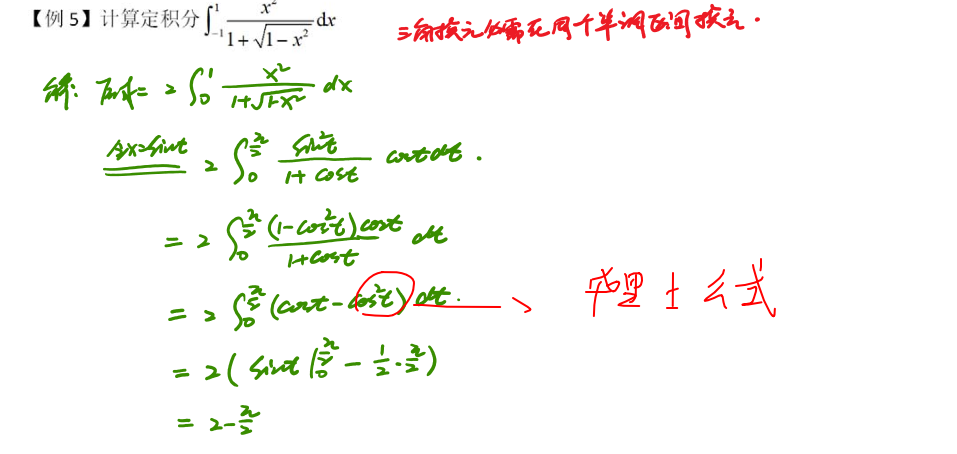 【例 5】计算定积分 ∫₋₁¹ x²/(1+√(1−x²)) dx
三角换元必需在同个单调区间换元.
解: 原式= 2∫₀¹ x²/(1+√(1-x²)) dx
令x=sint 2∫₀^(π/2) sin²t/(1+cost) cost dt .
= 2∫₀^(π/2) (1-cos²t)cost/(1+cost) dt
= 2∫₀^(π/2) (cost-cos²t) dt. → 华里士公式
= 2( sint |₀^(π/2) - 1/2·π/2 )
= 2-π/2